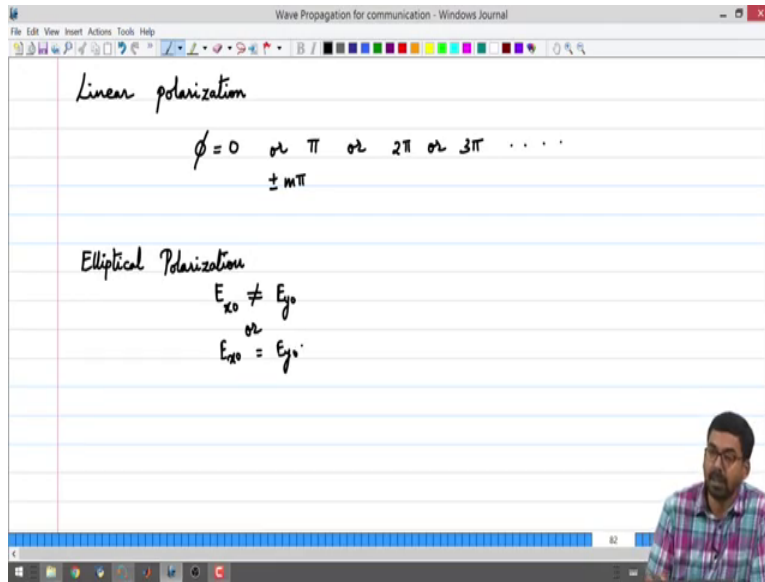 Wave Propagation for communication - Windows Journal
File Edit View Insert Actions Tools Help
B I
Linear polarization
ϕ = 0 or π or 2π or 3π ....
± mπ
Elliptical Polarization
E_x0 ≠ E_y0
or
E_x0 = E_y0
82